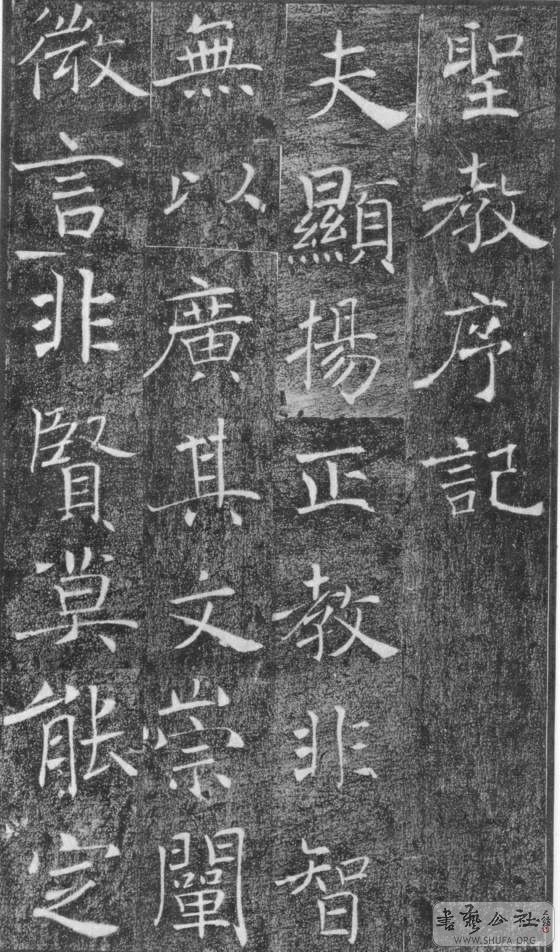 聖教序記
夫顯揚正教非智
無以廣其文崇闡
微言非賢莫能定
書藝公社
WWW.SHUFA.ORG